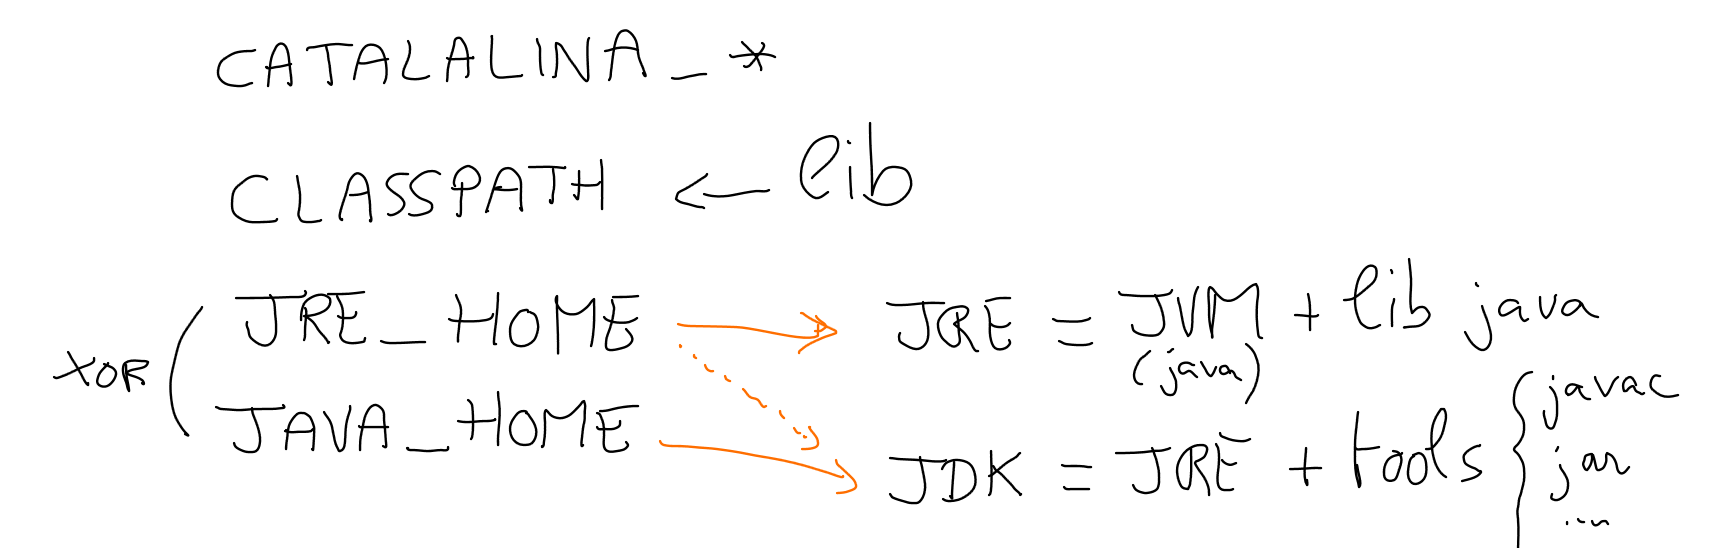 CATALALINA_*
CLASSPATH ← lib
XOR ( JRE_HOME → JRE = JVM + lib java
(java)
JAVA_HOME → JDK = JRE + tools { javac
jar
...